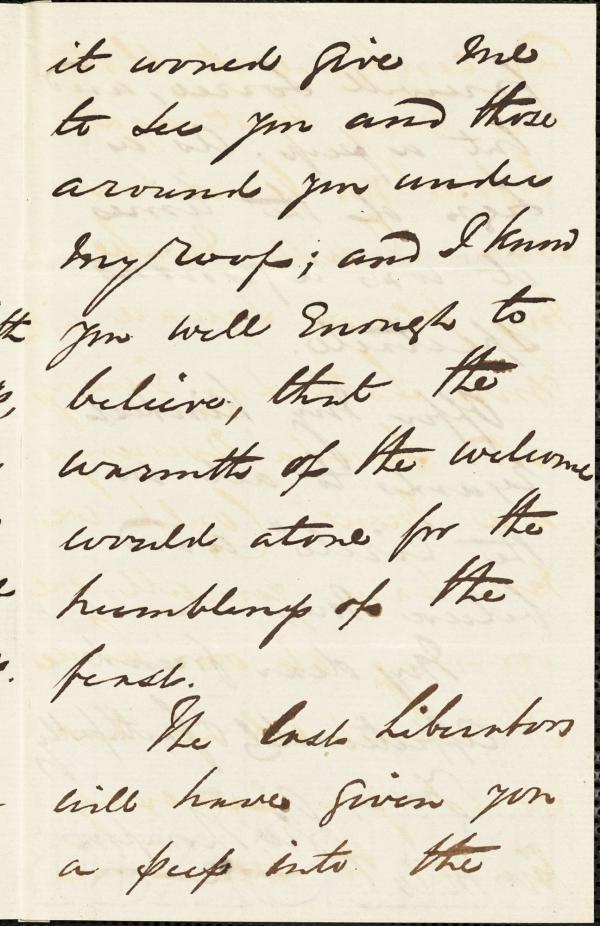 it would give me
to see you and those
around you under
my roof; and I know
you well enough to
believe, that the
warmth of the welcome
would atone for the
humbleness of the
feast.
The last Liberators
will have given you
a peep into the